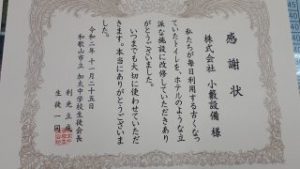 感謝状
株式会社 小籔設備 様
私たちが毎日利用する古くなっ
ていたトイレを、ホテルのような立
派な施設に改修していただきあり
がとうございました。
いつまでも大切に使わせていただ
きます。本当にありがとうございま
す。
令和二年十一月二十五日
和歌山市立 加太中学校生徒会長
生徒一同